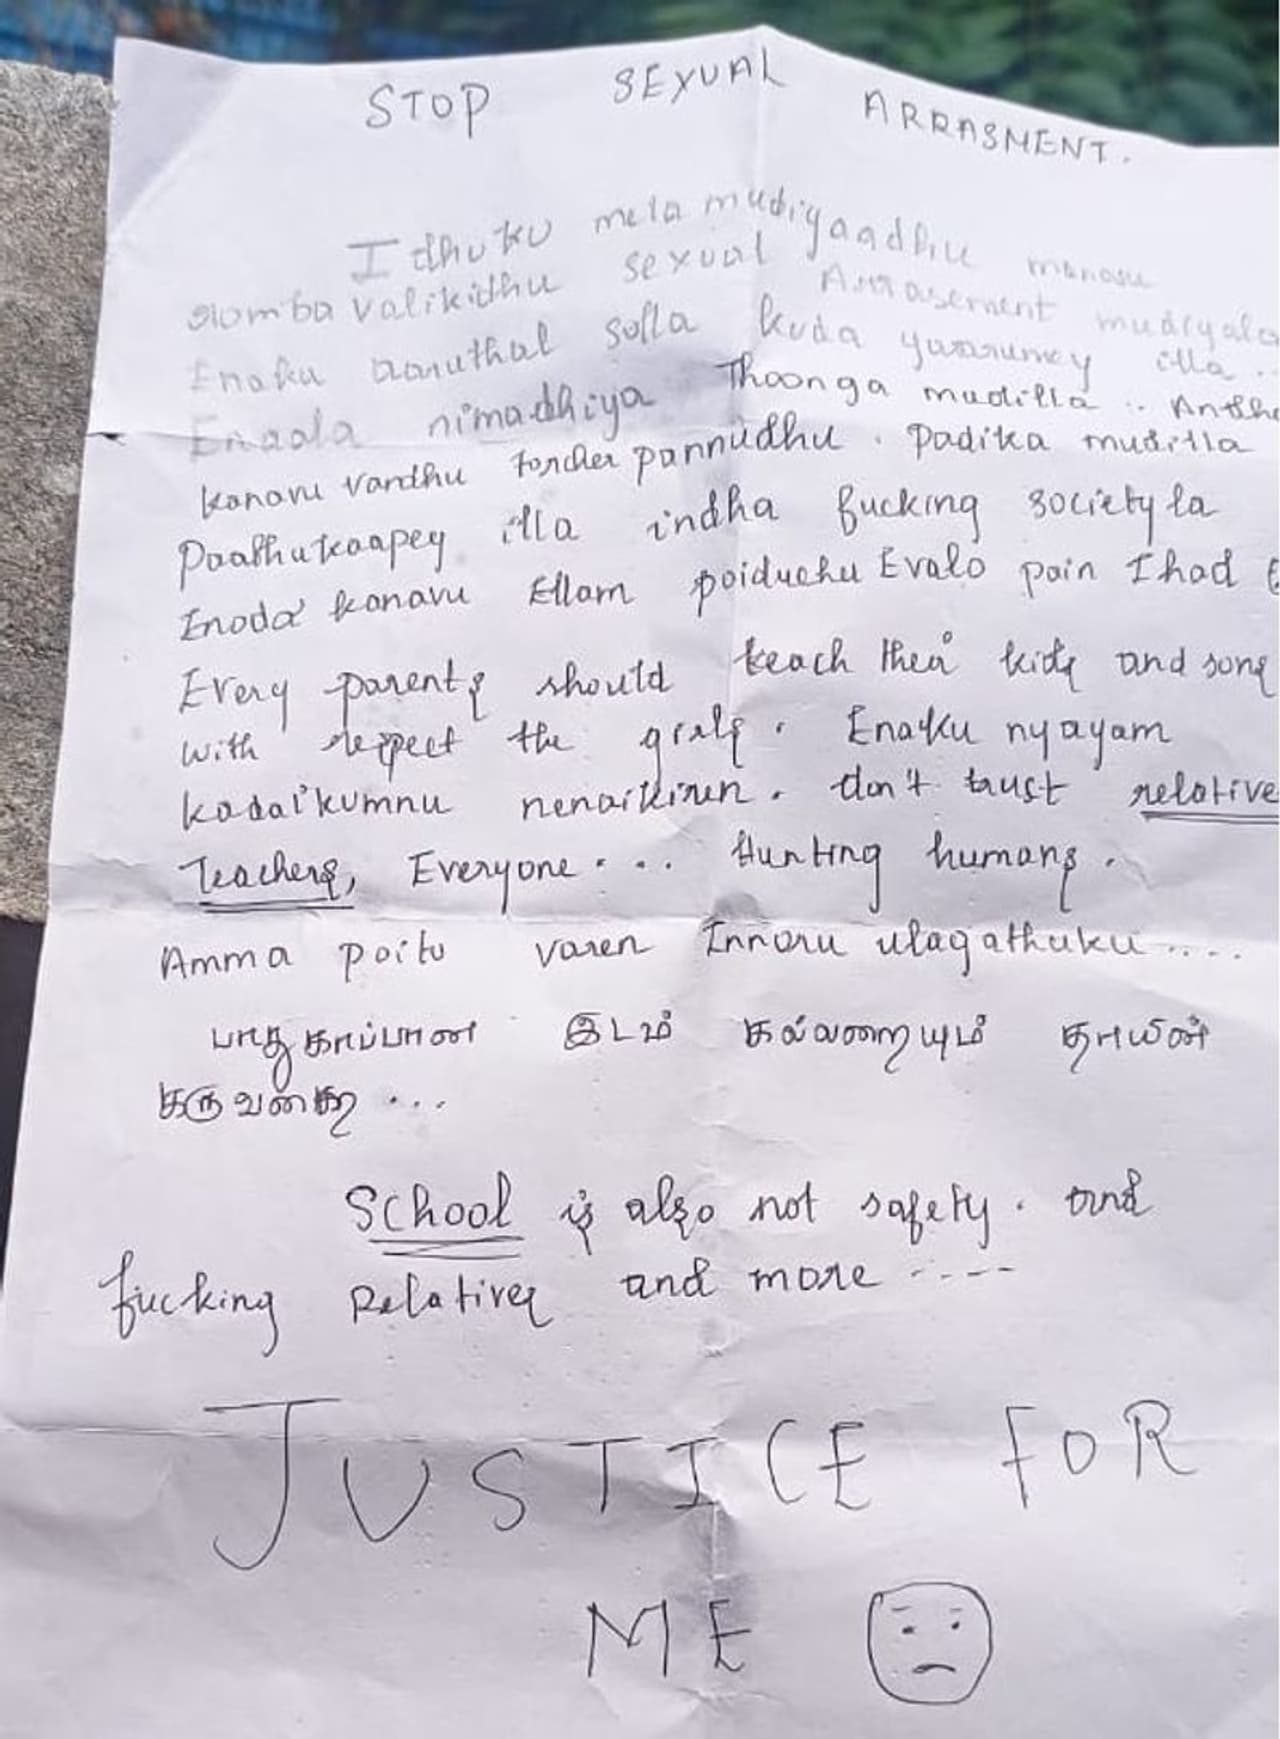 STOP SEXUAL ARRASMENT.
Idhuku mela mudiyaadhu manasu
romba valikidhu sexual Arrasement mudiyala
Enaku aaruthal solla kuda yaarumey illa ..
Enaala nimadhiya Thoonga mudilla .. Andha
kanavu vandhu torcher pannudhu . Padika mudilla
Paathukaapey illa indha fucking society la
Enoda kanavu Ellam poiduchu Evalo pain I had
Every parents should teach their kids and sons
with respect the girls . Enaku nyayam
kadaikumnu nenaikiren . don't trust relative
Teachers, Everyone .... Hunting humans .
Amma poitu varen Innoru ulagathuku ....
பாதுகாப்பான இடம் கல்லறையும் தாயின்
கருவறை ...
School is also not safety . and
fucking Relatives and more ----
JUSTICE FOR
ME